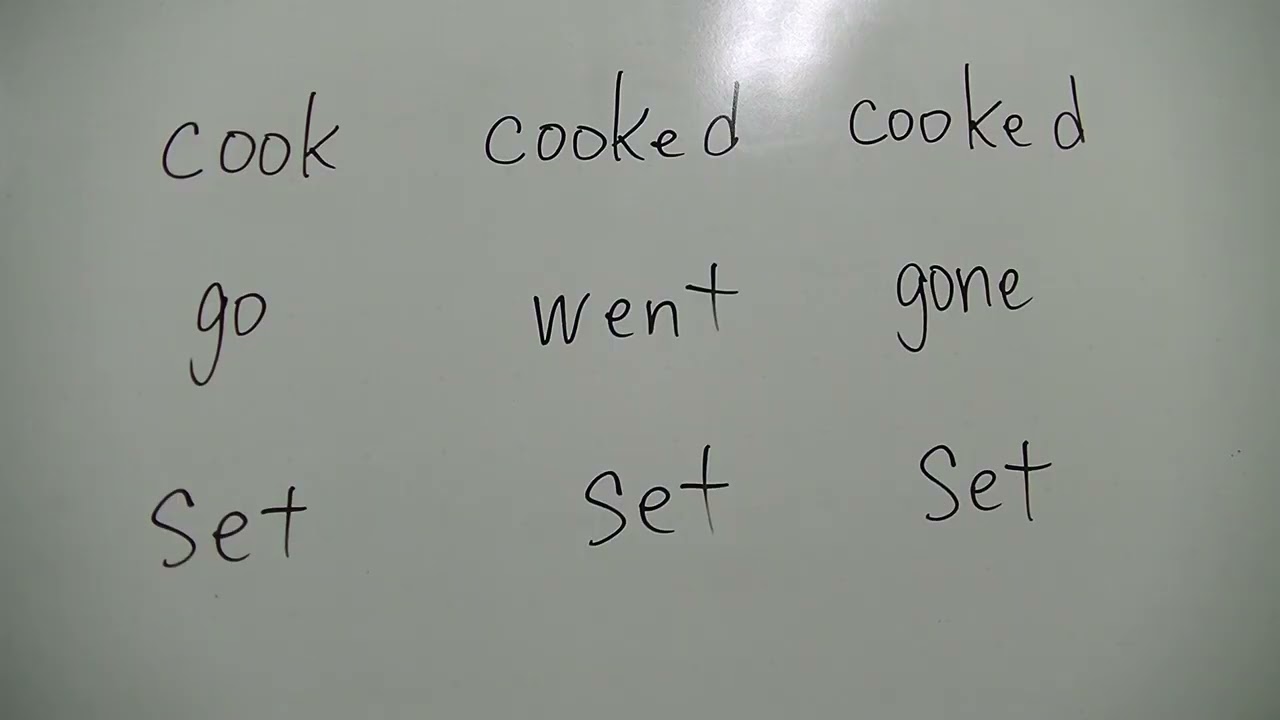 cook cooked cooked
go went gone
set set set